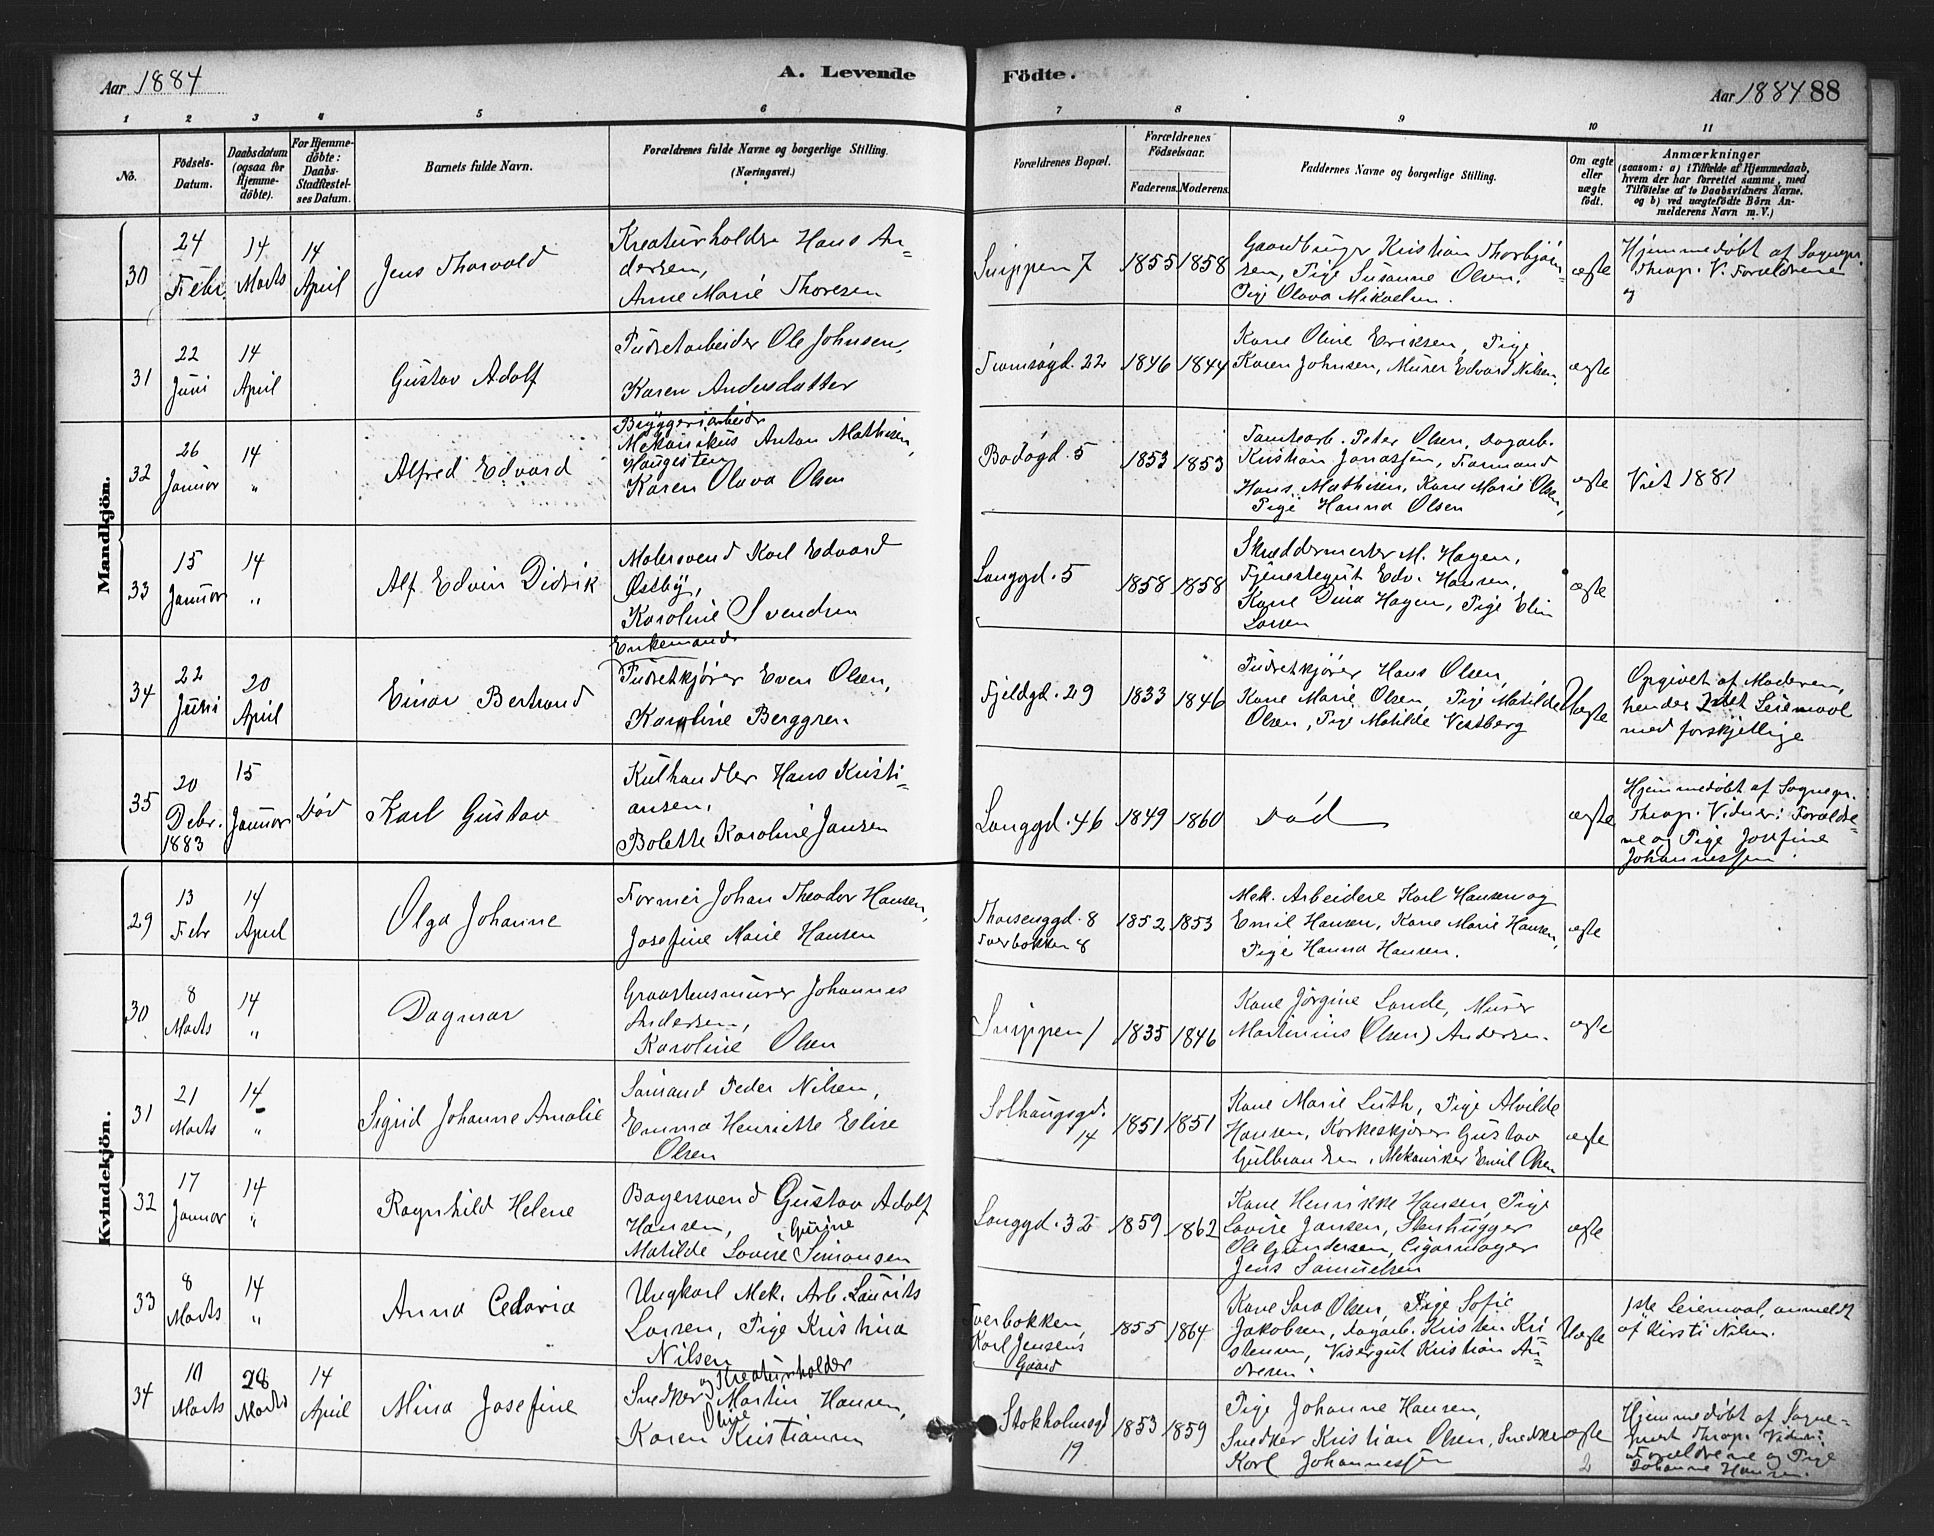 Aar 1884
A. Levende
Födte.
Aar 1884 88
1 2 3 4 5 6 7 8 9 10 11
No.
Födsels-Datum.
Daabsdatum (ogsaa for Hjemmedöbte).
For Hjemmedöbte: Daabs-Stadfæstelses Datum.
Barnets fulde Navn.
Forældrenes fulde Navne og borgerlige Stilling. (Næringsvei.)
Forældrenes Bopæl.
Forældrenes Födselsaar.
Faderens. Moderens.
Faddernes Navne og borgerlige Stilling.
Om ægte eller uægte födt.
Anmærkninger
(saasom: a) i Tilfælde af Hjemmedaab,
hvem der har forrettet samme, med
Tilföielse af to Daabsvidners Navne,
og b) ved uægtefödte Börn Anmelderens Navn m. V.)
Mandkjön.
30
24 Febr.
14 Marts
14 April
Jens Thorvald
Kreaturholder Hans An-
dersen,
Anne Marie Thoresen
Snippen 7
1855 1858
Gaardbruger Kristian Thorbjørn-
sen, Pige Susanne Olsen,
Pige Olava Mikaelsen.
ægte
Hjemmedøbt af Sognepr.
Thrap. V. Forældrene
og
31
22 Juni
14 April
Gustav Adolf
Pudretarbeider Ole Johnsen,
Karen Andersdatter
Tromsøgd. 22
1846 1844
Kone Oline Eriksen, Pige
Karen Johnsen, Murer Edvard Nilsen.
ægte
32
26 Januar
14 "
Alfred Edvard
Bryggeriarbeider
Mekanikus Anton Mathisen,
Haugesten
Karen Olava Olsen
Bodøgd. 5
1853 1853
Tomtearb. Peter Olsen, Dagarb.
Kristian Jonassen, Formand
Hans Mathisen, Kone Marie Olsen,
Pige Hanna Olsen
ægte
Viet 1881
33
15 Januar
14 "
Alf Edvin Didrik
Malersvend Karl Edvard
Østby,
Karoline Svendsen
Langgd. 5
1858 1858
Skræddermester M. Hagen,
Tjenestegut Edv. Hansen,
Kone Dina Hagen, Pige Elin
Larsen
ægte
34
22 Juni
20 April
Einar Bertrand
Enkemand
Pudretkjører Even Olsen,
Karoline Berggren
Fjeldgd. 29
1833 1846
Pudretkjører Hans Olsen,
Kone Marie Olsen, Pige Matilde
Olsen, Pige Matilde Vestberg
Uægte
Opgivet af Moderen,
hendes 2det Leiermaal
med forskjellige
35
20 Debr. 1883
15 Januar
Død
Karl Gustav
Kulhandler Hans Kristi-
ansen,
Bolette Karoline Jansen
Langgd. 46
1849 1860
Død
ægte
Hjemmedøbt af Sognepr.
Thrap. Vidner: Forældre-
ne og Pige Josefine
Johannessen.
Kvindekjön.
29
13 Febr
14 April
Olga Johanne
Former Johan Theodor Hansen,
Josefine Marie Hansen
Thorsenggd. 8
Tverbakken 8
1852 1853
Mek. Arbeidere Karl Hansen og
Emil Hansen, Kone Marie Hansen,
Pige Hanna Hansen.
ægte
30
8 Marts
14 "
Dagmar
Graastensmurer Johannes
Andersen,
Karoline Olsen
Snippen 1
1835 1846
Kone Jørgine Lande, Murer
Martinius (Olsen) Andersen.
ægte
31
21 Marts
14 "
Sigrid Johanne Amalie
Sømand Peder Nilsen,
Emma Henriette Elise
Olsen
Solhaugsgd. 14
1851 1851
Kone Marie Luth, Pige Alvilde
Hansen, Korkeskjærer Gustav
Gulbrandsen, Mekaniker Emil Olsen
ægte
32
17 Januar
14 "
Ragnhild Helene
Bagersvend Gustav Adolf
Hansen, Gurine
Matilde Lovise Simonsen
Langgd. 32
1859 1862
Kone Henrikke Hansen, Pige
Lovise Jansen, Stenhugger
Ole Gundersen, Cigarmager
Jens Samuelsen
ægte
33
8 Marts
14 "
Anna Cedaria
Ungkarl Mek. Arb. Laurits
Larsen, Pige Kristina
Nilsen
Tverbakken,
Karl Jensens
Gaard
1855 1864
Kone Sara Olsen, Pige Sofie
Jakobsen, Dagarb. Kristen Kri
stensen, Visergut Kristian An-
dresen.
Uægte
1ste Leiermaal, anmeldt
af Kirsti Nilsen.
34
10 Marts
28 Marts
14 April
Mina Josefine
og Kreaturholder
Snedker Martin Hansen,
Oline
Karen Kristiansen
Stokholmsgd
19
1853 1859
Pige Johanne Hansen,
Snedker Kristian Olsen, Snedker
Karl Johannessen
ægte
2
Hjemmedøbt af Sogne-
prest Thrap. Vidner:
Forældrene og Pige
Johanne Hansen.